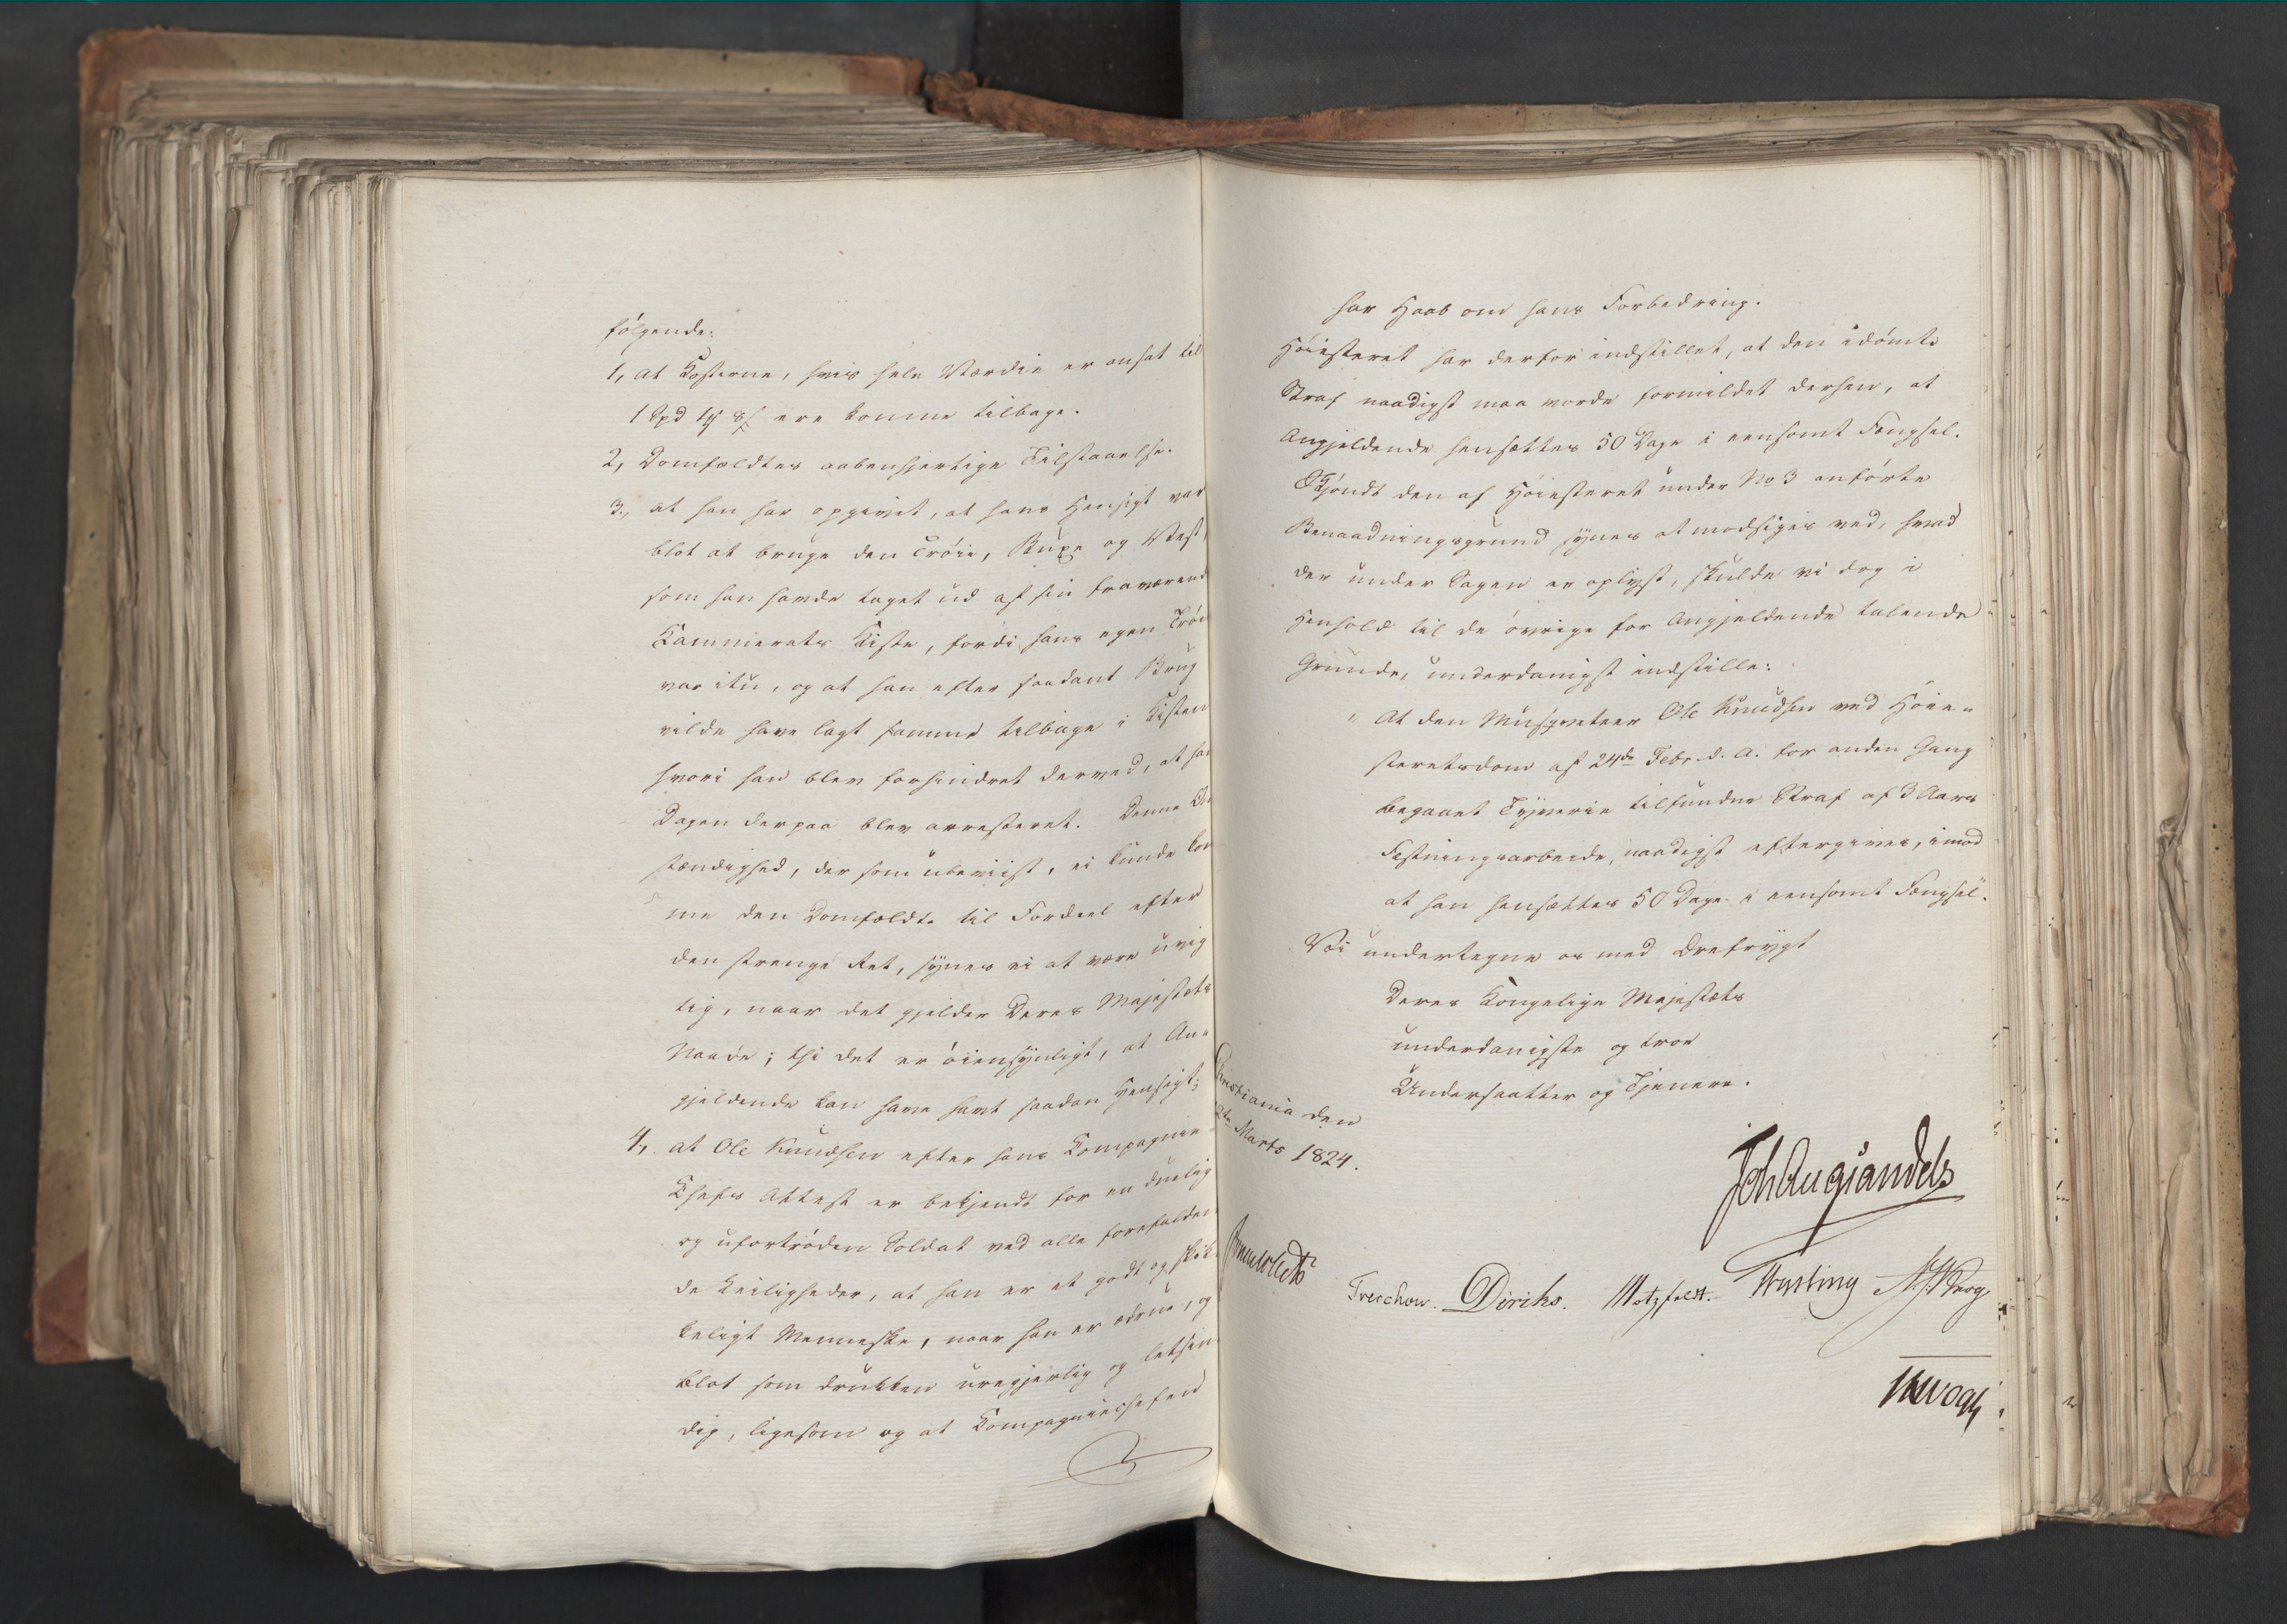 følgende:
1, at Kosterne, hvis hele Værdie er ansat til
1 Spd 1 8 ere komne tilbage.
2, Domfældtes aabenhjertige Tilstaaelse.
3, at han har opgivet, at hans Hensigt var
blot at bruge den Trøie, Buxe og Vest,
som han havde taget ud af sin fraværend
Kammerats Kiste, fordi hans egen Trøie
var itu, og at han efter saadant Brug
vilde have lagt samme tilbage i Kisten
hvori han blev forhindret derved, at han
Dagen derpaa blev arresteret. Denne
stændighed, der som ubeviist, ei kunde kom
me den Domfældte til Fordeel efter
den strenge Ret, synes ei at være uvig
tig, naar det gjelder Deres Majestæts
Naade; thi det er øiensynligt, at An-
gjeldende kan have havt saadan Hensigt;
4, at Ole Knudsen efter hans Compagnie-
Chefs Attest er bekjendt for en duelig
og ufortrøden Soldat ved alle forefalden
de Leiligheder, at han er et godt og skik
keligt Menneske, naar han er ædrue, og
blot som drukken uregjerlig og letsin
dig, ligesom og at Compagniechefen
har Haab om hans Forbedring.
Høiesteret har derfor indstillet, at den idømte
Straf naadigst maa vorde formildet derhen, at
Angjeldende hensættes 50 Dage i eensomt Fængsel.
Skjøndt den af Høiesteret under No 3 anførte
Benaadningsgrund synes at modsiges ved, hvad
der under Sagen er oplyst, skulde vi dog i
Henhold til de øvrige for Angjeldende talende
Grunde, underdanigst indstille:
" At den Musqveteer Ole Knudsen ved Høie-
steretsdom af 24de Febr. d. A. for anden Gang
begaaet Tyverie tilfundne Straf af 3 Aars
Fæstningsarbeide, naadigst eftergives, imod
at han hensættes 50 Dage i eensomt Fængsel".
Vi undertegne os med Ærefrygt
Deres Kongelige Majestæts
underdanigste og troe
Undersaatter og Tjenere.
Christiania den
Marts 1824.
Joh Aug Sandels
Sommerhielm
Treschow. Diriks. Motzfeldt. Fasting